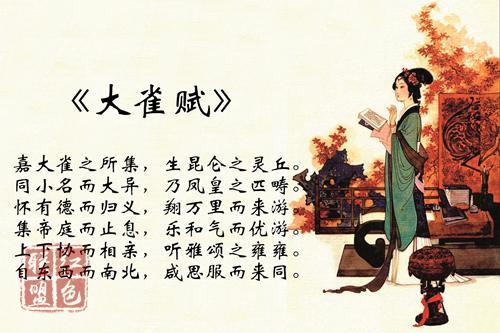 《大雀赋》
嘉大雀之所集，生昆仑之灵丘。
同小名而大异，乃凤皇之匹畴。
怀有德而归义，翔万里而来游。
集帝庭而止息，乐和气而优游。
上下协而相亲，听雅颂之雍雍。
自东西而南北，咸思服而来同。
红色
联盟